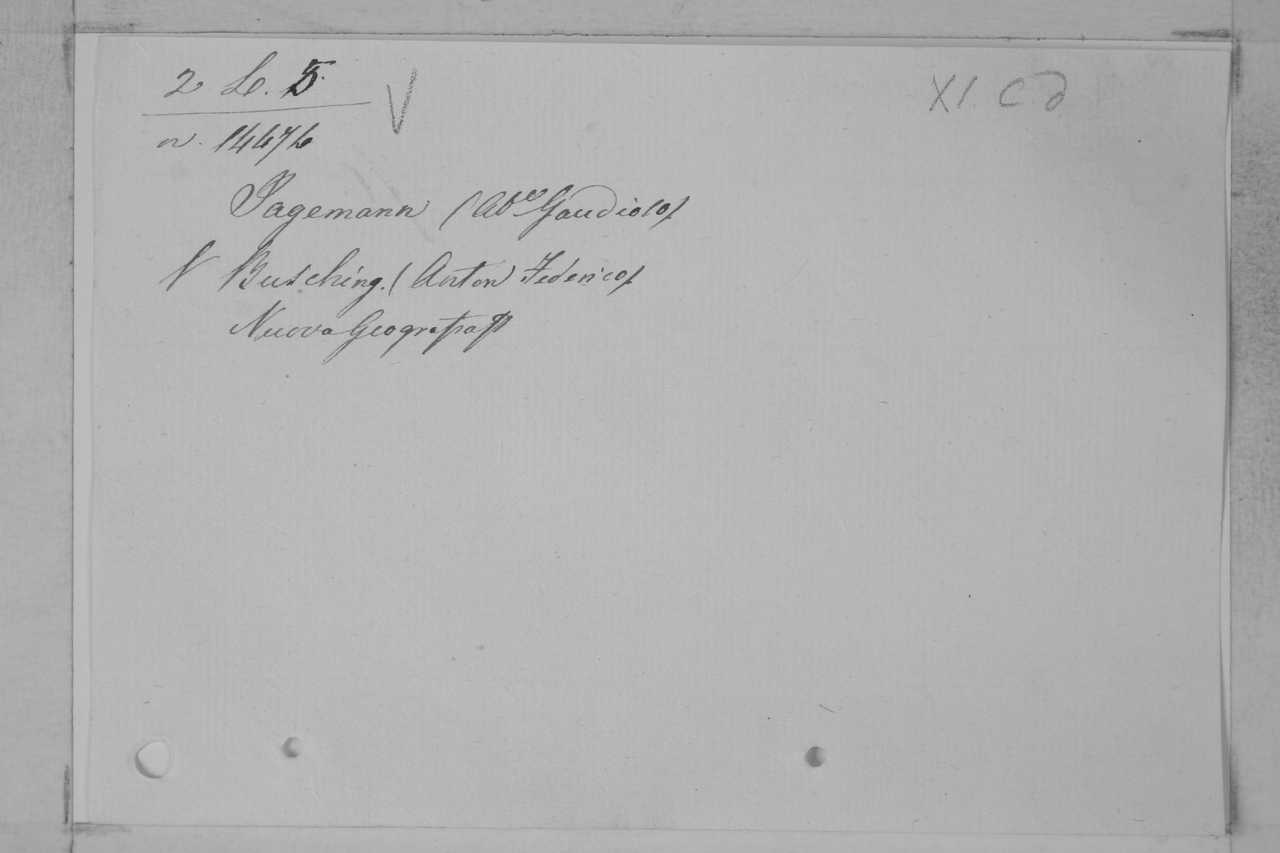 2 L. 5. V XI C d
n. 1467b
Jagemann (Ab.e Gaudioso)
V Busching. (Anton Federico)
Nuova Geografia